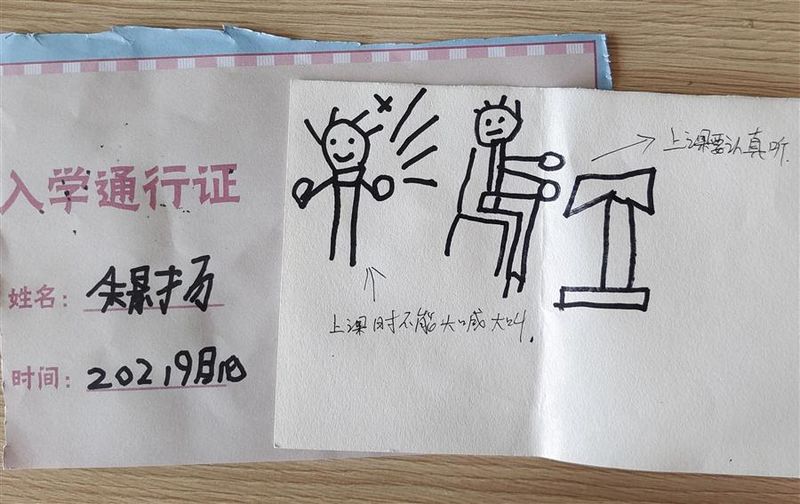 入学通行证
姓名：朱景扬
时间：2021 9月1日
上课时不能大喊大叫.
上课要认真听.